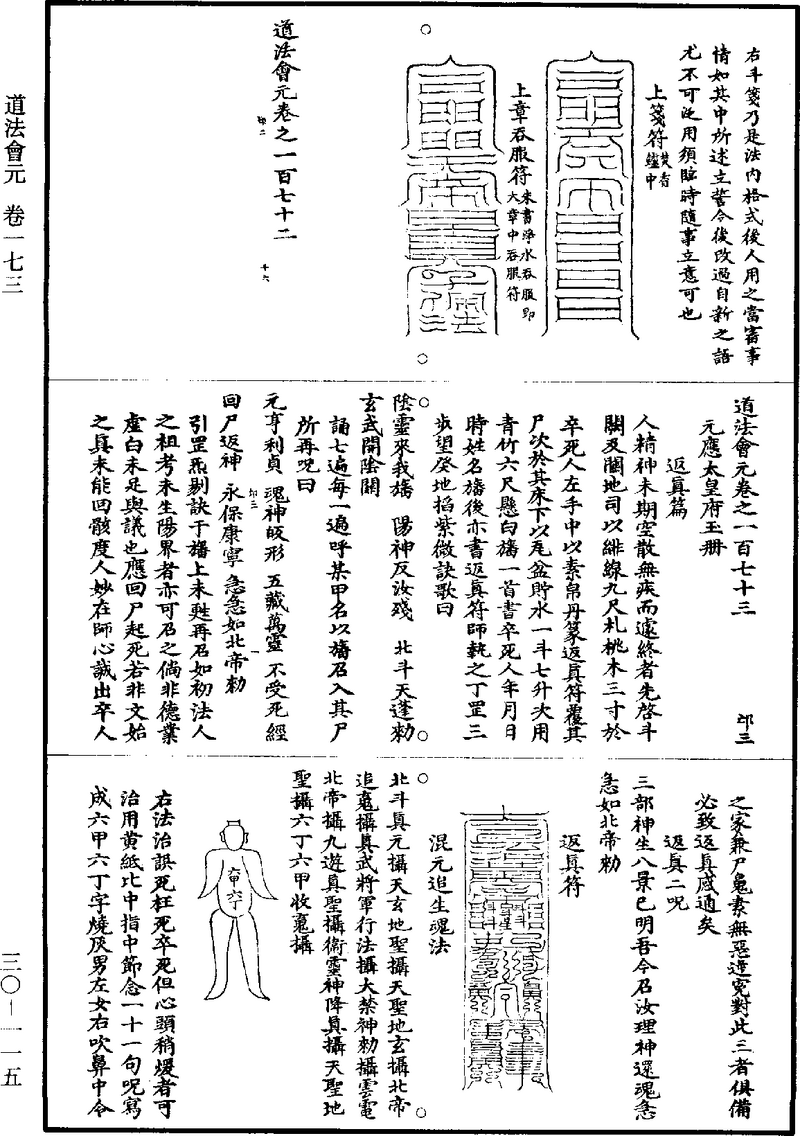 道法會元 卷一七三
三〇—一一五
右斗箋乃是法內格式後人用之當審事
情如其中所述立誓今後改過自新之語
尤不可泛用須臨時隨事立意可也
上箋符焚香爐中
上章吞服符朱書淨水吞服即大章中吞服符
道法會元卷之一百七十二
卬二
十六
道法會元卷之一百七十三
卬三
元應太皇府玉冊
返真篇
人精神未期空散無疾而遽終者先啓斗
闕及閫地司以緋線九尺札桃木三寸於
卒死人左手中以素帛丹篆返真符覆其
尸次於其床下以瓦盆貯水一斗七升次用
青竹六尺懸白旛一首書卒死人年月日
時姓名旛後亦書返真符師執之丁罡三
步望癸地掐紫微訣歌曰
陰靈來我旛 陽神反汝殘 北斗天蓬勑
玄武開陰關
誦七遍每一遍呼某甲名以旛召入其尸
所再呪曰
元亨利貞 魂神皈形 五藏萬靈 不受死經
回尸返神 永保康寧 急急如北帝勑
卬三
一
引罡炁剔訣于旛上未甦再召如初法人
之祖考未生陽界者亦可召之倘非德業
虛白未足與議也應回尸起死若非文始
之真未能回骸度人妙在師心誠出卒人
之家兼尸鬼素無惡逆寃對此三者俱備
必致返真感通矣
返真二呪
三部神生八景已明吾今召汝理神還魂急
急如北帝勑
返真符
混元追生魂法
北斗真元攝天玄地聖攝天聖地玄攝北帝
追竈攝真武將軍行法攝大禁神勑攝雲電
北帝攝九遊真聖攝衛靈神降真攝天聖地
聖攝六丁六甲收竈攝
六甲六丁
右法治誤死枉死卒死但心頭稍煖者可
治用黄紙比中指中節念一十一句呪寫
成六甲六丁字燒灰男左女右吹鼻中令